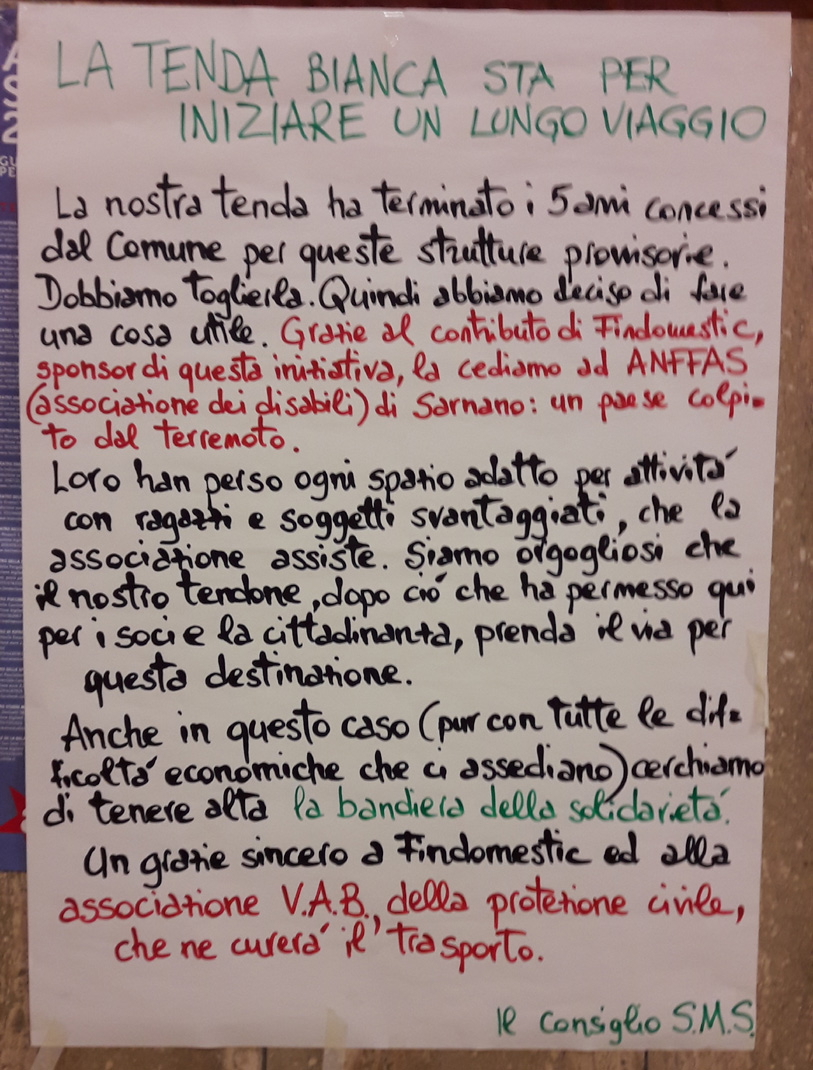 LA TENDA BIANCA STA PER
INIZIARE UN LUNGO VIAGGIO
La nostra tenda ha terminato i 5 anni concessi
dal Comune per queste strutture provvisorie.
Dobbiamo toglierla. Quindi abbiamo deciso di fare
una cosa utile. Grazie al contributo di Findomestic,
sponsor di questa iniziativa, la cediamo ad ANFFAS
(associazione dei disabili) di Sarnano: un paese colpi=
to dal terremoto.
Loro han perso ogni spazio adatto per attivitá
con ragazzi e soggetti svantaggiati, che la
associazione assiste. Siamo orgogliosi che
il nostro tendone, dopo ció che ha permesso qui
per i soci e la cittadinanza, prenda il via per
questa destinazione.
Anche in questo caso (pur con tutte le dif=
ficoltá economiche che ci assediano) cerchiamo
di tenere alta la bandiera della solidarietá.
Un grazie sincero a Findomestic ed alla
associazione V.A.B., della protezione civile,
che ne curerá il trasporto.
Il Consiglio S.M.S.